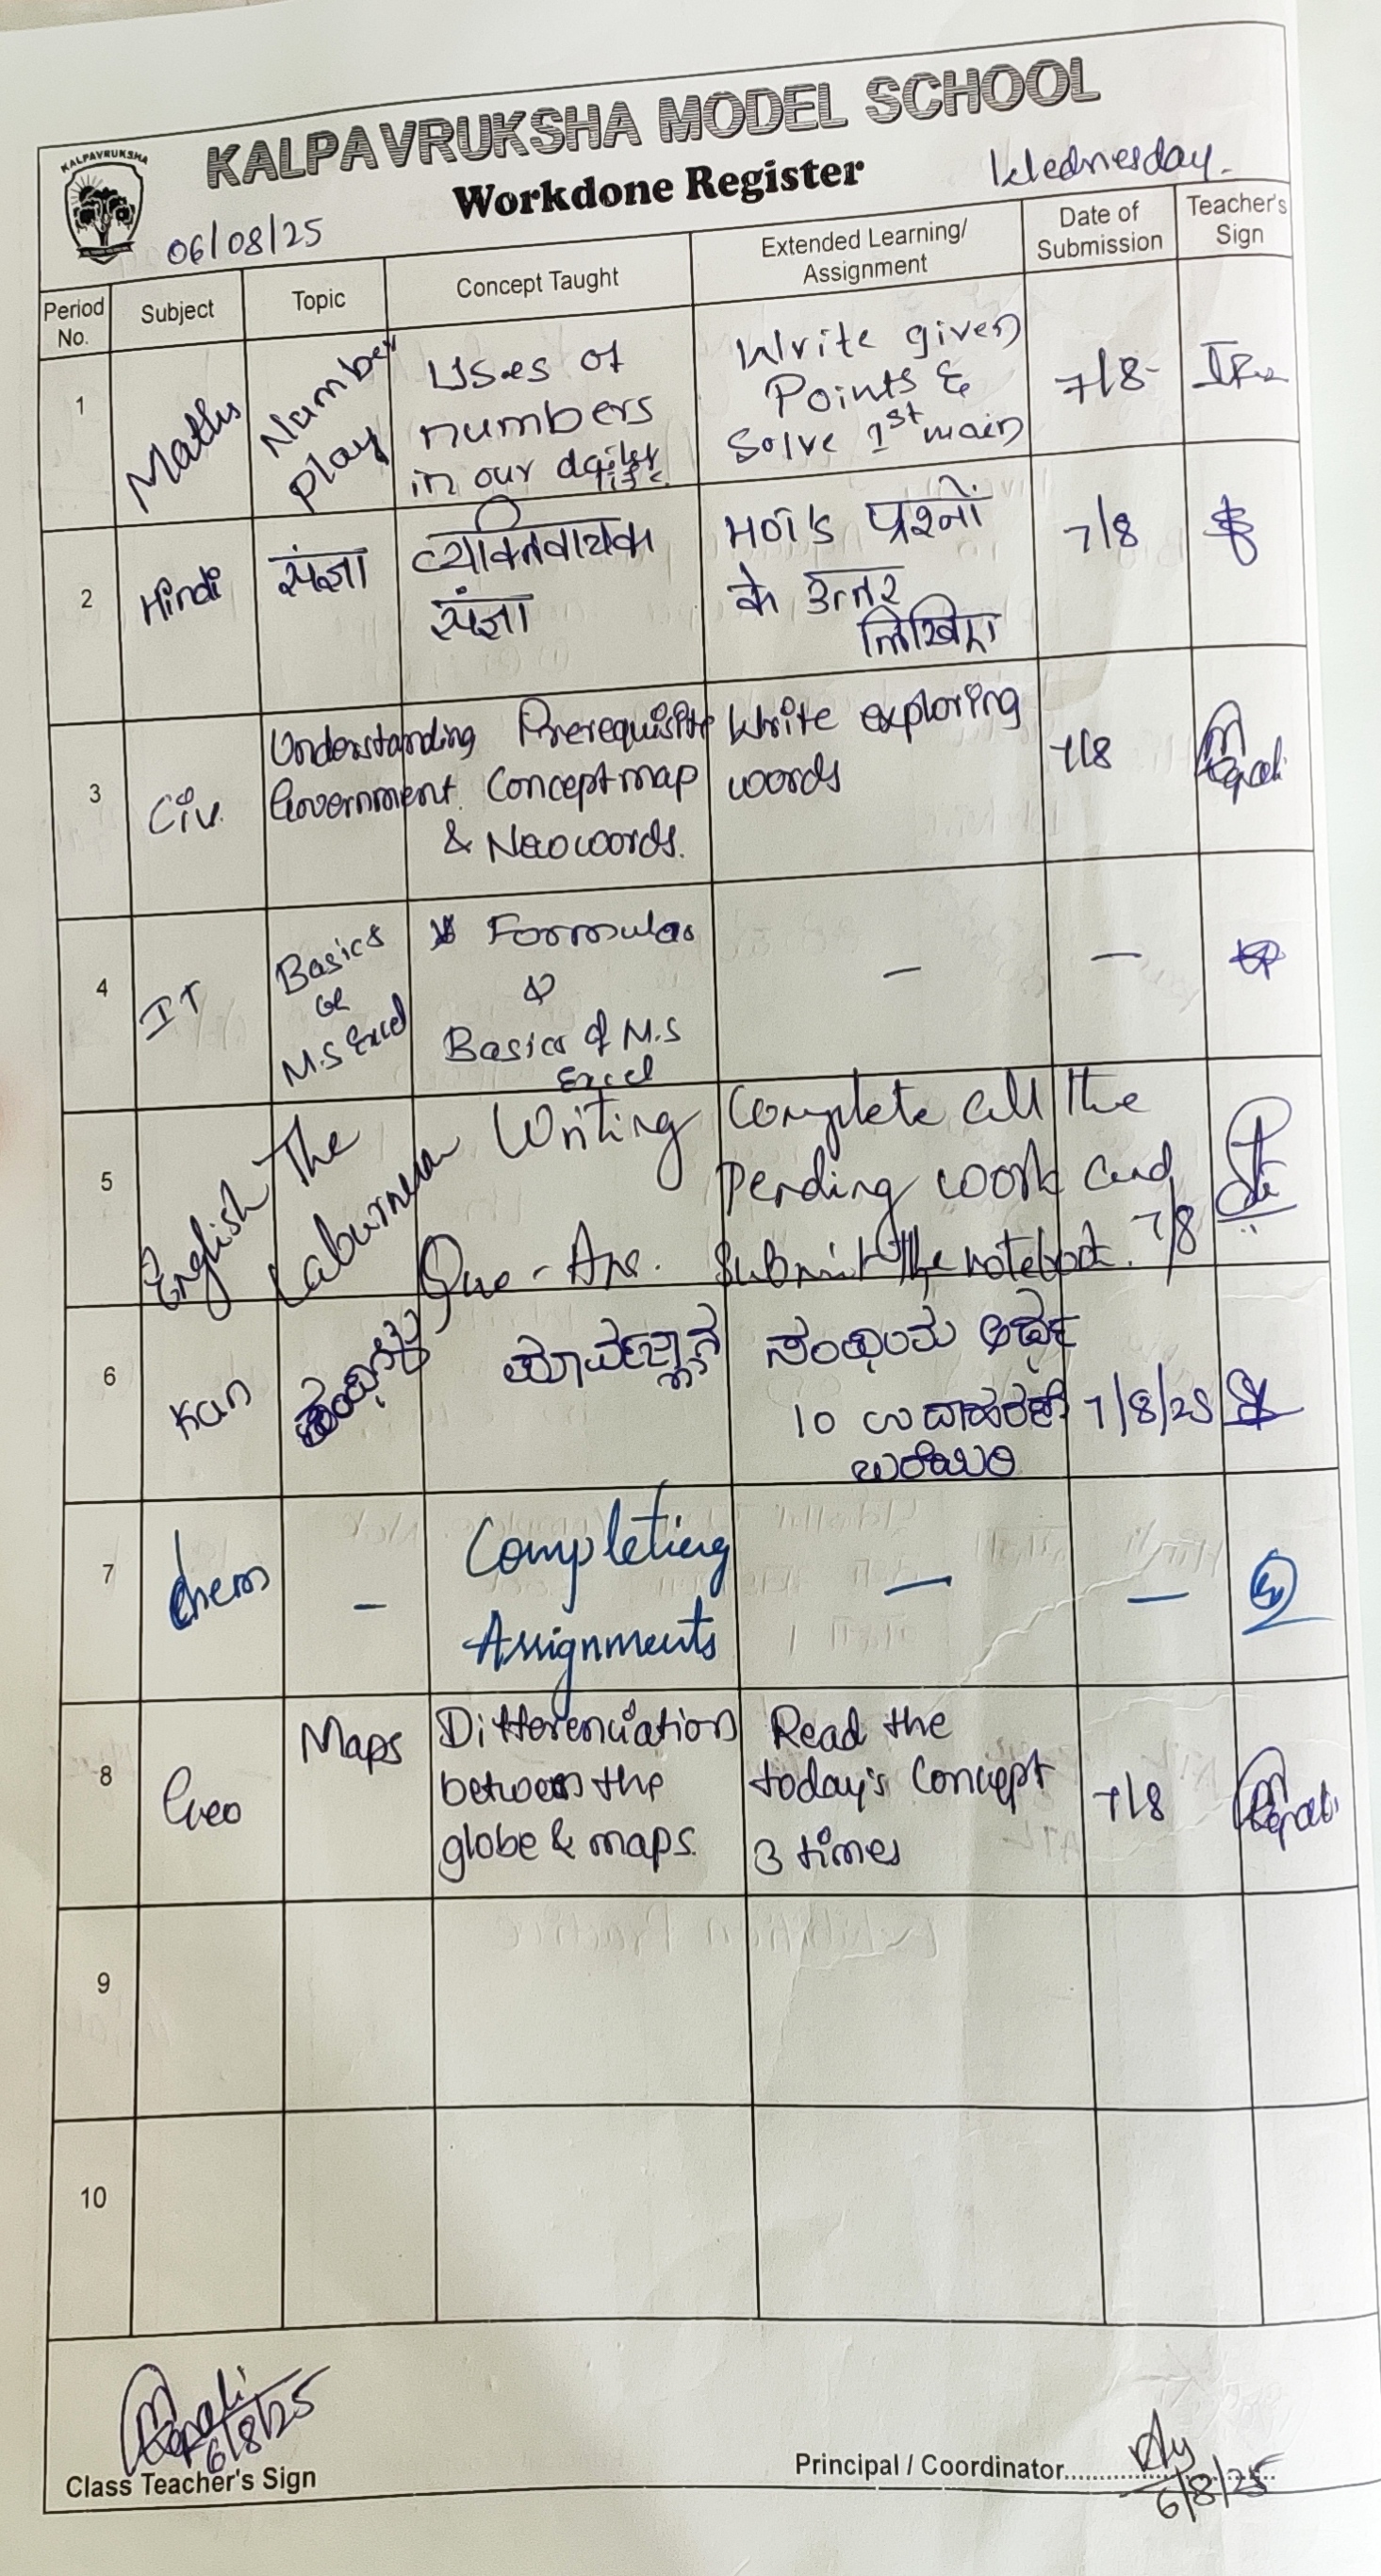 KALPAVRUKSHA MODEL SCHOOL
KALPAVRUKSHA
Workdone Register
Wednesday.
06/08/25
Period No.
Subject
Topic
Concept Taught
Extended Learning/
Assignment
Date of
Submission
Teacher's
Sign
1
Maths
Number
play
Uses of
numbers
in our daily
life.
Write given
Points &
Solve 1st main
7/8
2
Hindi
संज्ञा
व्यक्तिवाचक
संज्ञा
HOTS प्रश्नों
के उत्तर
लिखिए
7/8
3
Civ.
Understanding
Government.
Prerequisite
Concept map
& New words.
Write exploring
words
7/8
4
IT
Basics
of
M.S Excel
Formulas
&
Basics of M.S
Excel
—
—
5
English
The
Laburnum
Writing
Que - Ans.
Complete all the
Pending work and
Submit the notebook.
7/8
6
Kan
10 ಉದಾಹರಣೆ
ಬರೆಯಿರಿ
7/8/25
7
Chem
—
Completing
Assignments
—
—
8
Geo
Maps
Differenciation
between the
globe & maps.
Read the
today's Concept
3 times
7/8
9
10
6/8/25
Class Teacher's Sign
Principal / Coordinator
6/8/25